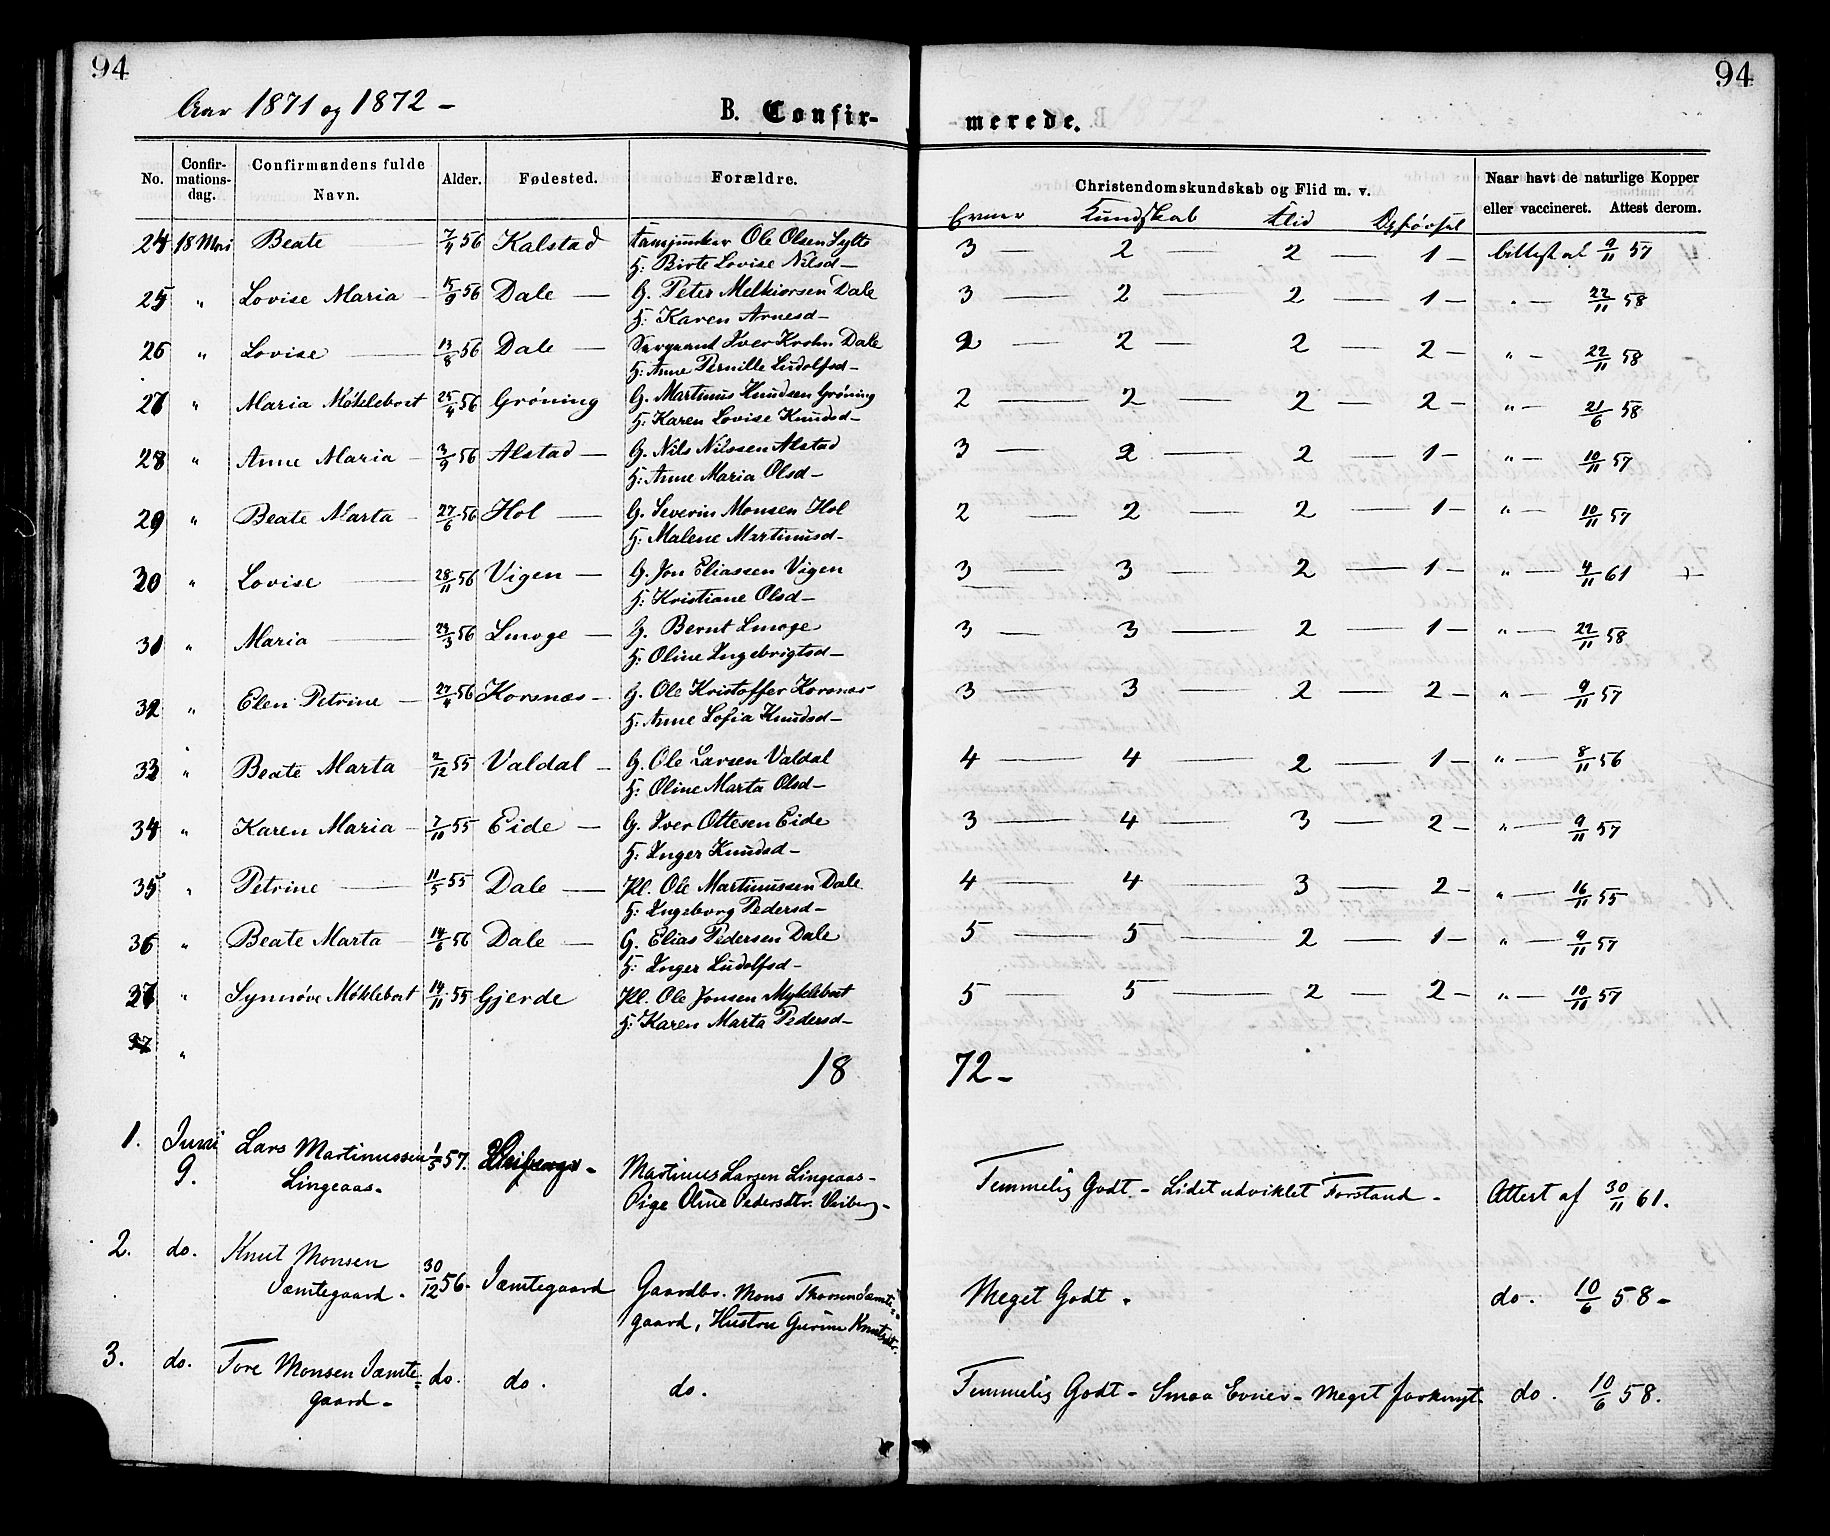 94
94
Aar 1871 og 1872 -
B. Confir-
merede.
No.
Confir-
mations-
dag.
Confirmandens fulde
Navn.
Alder.
Fødested.
Forældre.
Christendomskundskab og Flid m. v.
Evner Kundskab Flid Opførsel
Naar havt de naturlige Kopper
eller vaccineret. Attest derom.
24 18 Mai Beate 7/4 56 Kalstad Ole Olsen Sylte 3 2 — 2 — 1 — 9/11 57
H: Birte Lovise Nilsd —
25 " Lovise Maria — 15/9 56 Dale — G. Peter Melkiorsen Dale 3 — 2 — 2 — 1 — " — 22/11 58
H: Karen Arnesd —
26 " Lovise — 13/8 56 Dale — Sergeant Iver Krohn Dale 2 — 2 — 2 — 2 — " — 22/11 58
H: Anne Pernille Ludolfsd —
27 " Maria Møklebost 25/4 56 Grøning G. Martinus Knudsen Grøning 2 — 2 — 2 — 2 — " — 21/6 58
H: Karen Lovise Knudsd —
28 " Anne Maria — 3/9 56 Alstad — G. Nils Nilssen Alstad 3 — 2 — 2 — 1 — " — 10/11 57
H: Anne Maria Olsd —
29 " Beate Marta — 27/6 56 Hol — G. Severin Monsen Hol 2 — 2 — 2 — 1 — " — 10/11 57
H: Malene Martinusd —
30 " Lovise — 28/11 56 Vigen — G. Jon Eliassen Vigen 3 — 3 — 2 — 1 — " — 4/11 61
H: Kristiane Olsd —
31 " Maria — 56 Smoge — G. Bernt Smoge 3 — 3 — 2 — 1 — " — 22/11 58
H: Oline Ingebrigtsd —
32 " Elen Petrine — 27/4 56 Korsnæs — G. Ole Kristoffer Korsnæs 3 — 3 — 2 — 2 — " — 9/11 57
H: Anne Sofia Knudsd —
33 " Beate Marta 2/12 55 Valdal — G. Ole Larsen Valdal 4 — 4 — 2 — 1 — " — 8/11 56
H: Oline Marta Olsd —
34 " Karen Maria — 7/10 55 Eide — G. Iver Ottesen Eide 3 — 4 — 3 — 2 — " — 9/11 57
H: Inger Knudsd —
35 " Petrine — 11/5 55 Dale — Pl. Ole Martinussen Dale 4 — 4 — 3 — 2 — " — 16/11 55
H: Ingeborg Pedersd —
36 " Beate Marta — 14/6 56 Dale — G. Elias Pedersen Dale 5 — 5 — 2 — 1 — " — 9/11 57
H: Inger Ludolfsd —
37 " Synnøve Møklebost 14/11 55 Gjerde Pl. Ole Jonsen Myklebost 5 — 5 — 2 — 2 — " — 10/11 57
H: Karen Marta Pedersd —
37 "
18 72 —
1. Juni Lars Martinussen 1/5 57. Martinus Larsen Lingeaas — Temmelig Godt — Lidet udviklet Forstand — Attest af 30/11 61.
9. Lingeaas — Pige Oline Pedersdtr. Veiberg —
2. do. Knut Monsen 30/12 56. Jæmtegaard Gaardbr. Mons Thoresen Jæmte= Meget Godt. do. 10/6 58 —
Jæmtegaard. gaard, Hustru Gurine Knutsdtr.
3. do. Tore Monsen Jæmte= do. do. do. Temmelig Godt — Smaa Evner — Meget forknyt. do. 10/6 58.
gaard —